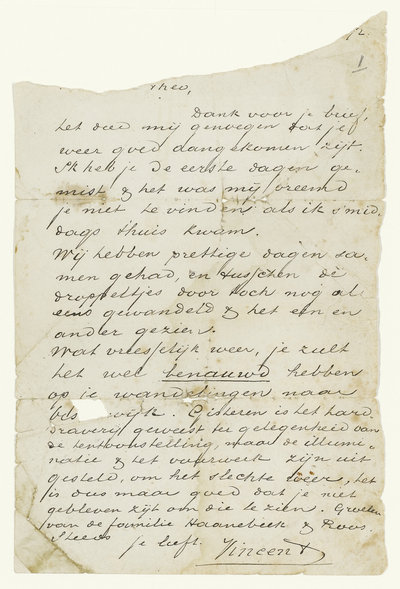 72.
1
Theo,
Dank voor je brief,
het deed mij genoegen dat je
weer goed aangekomen zijt.
Ik heb je de eerste dagen ge-
mist, & het was mij vreemd
je niet te vinden als ik s'mid-
dags thuis kwam.
Wij hebben prettige dagen sa-
men gehad, en tusschen de
droppeltjes door toch nog al
eens gewandeld & het een en
ander gezien.
Wat vreesselijk weer, je zult
het wel benauwd hebben
op je wandelingen naar
wijk. Gisteren is het hard-
draverij geweest ter gelegenheid van
de tentoonstelling, maar de illumi-
natie & het vuurwerk zijn uit
gesteld, om het slechte weer, het
is dus maar goed dat je niet
gebleven zijt om die te zien. Groeten
van de familie Haanebeek & Roos.
Steeds
je liefh.
Vincent